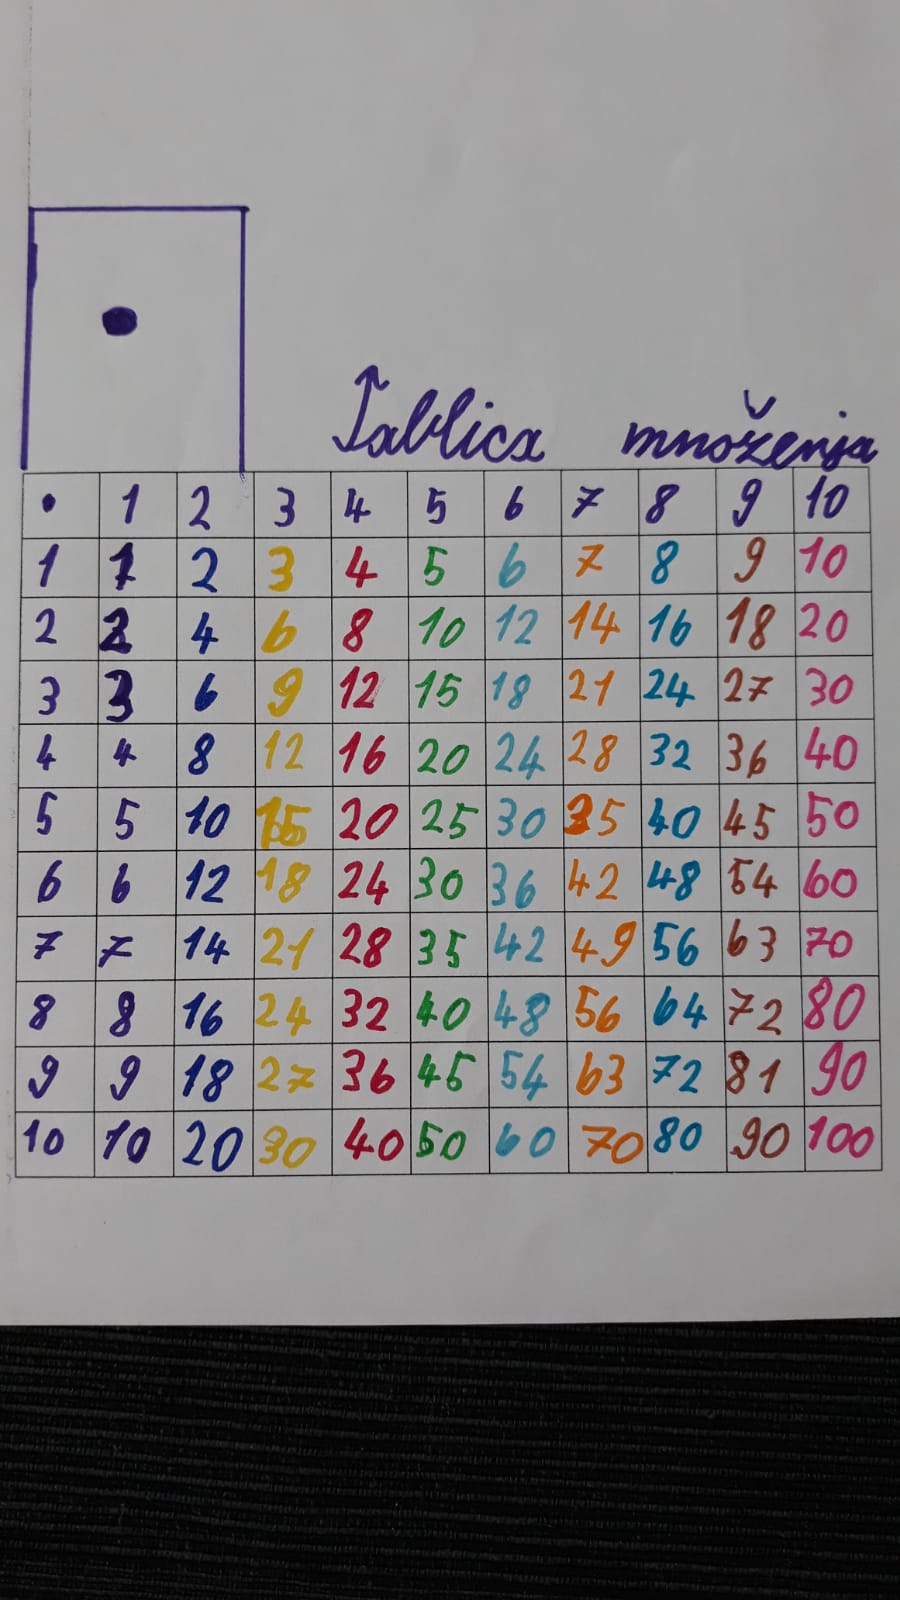 Tablica množenja
• 1 2 3 4 5 6 7 8 9 10
1 1 2 3 4 5 6 7 8 9 10
2 2 4 6 8 10 12 14 16 18 20
3 3 6 9 12 15 18 21 24 27 30
4 4 8 12 16 20 24 28 32 36 40
5 5 10 15 20 25 30 35 40 45 50
6 6 12 18 24 30 36 42 48 54 60
7 7 14 21 28 35 42 49 56 63 70
8 8 16 24 32 40 48 56 64 72 80
9 9 18 27 36 45 54 63 72 81 90
10 10 20 30 40 50 60 70 80 90 100